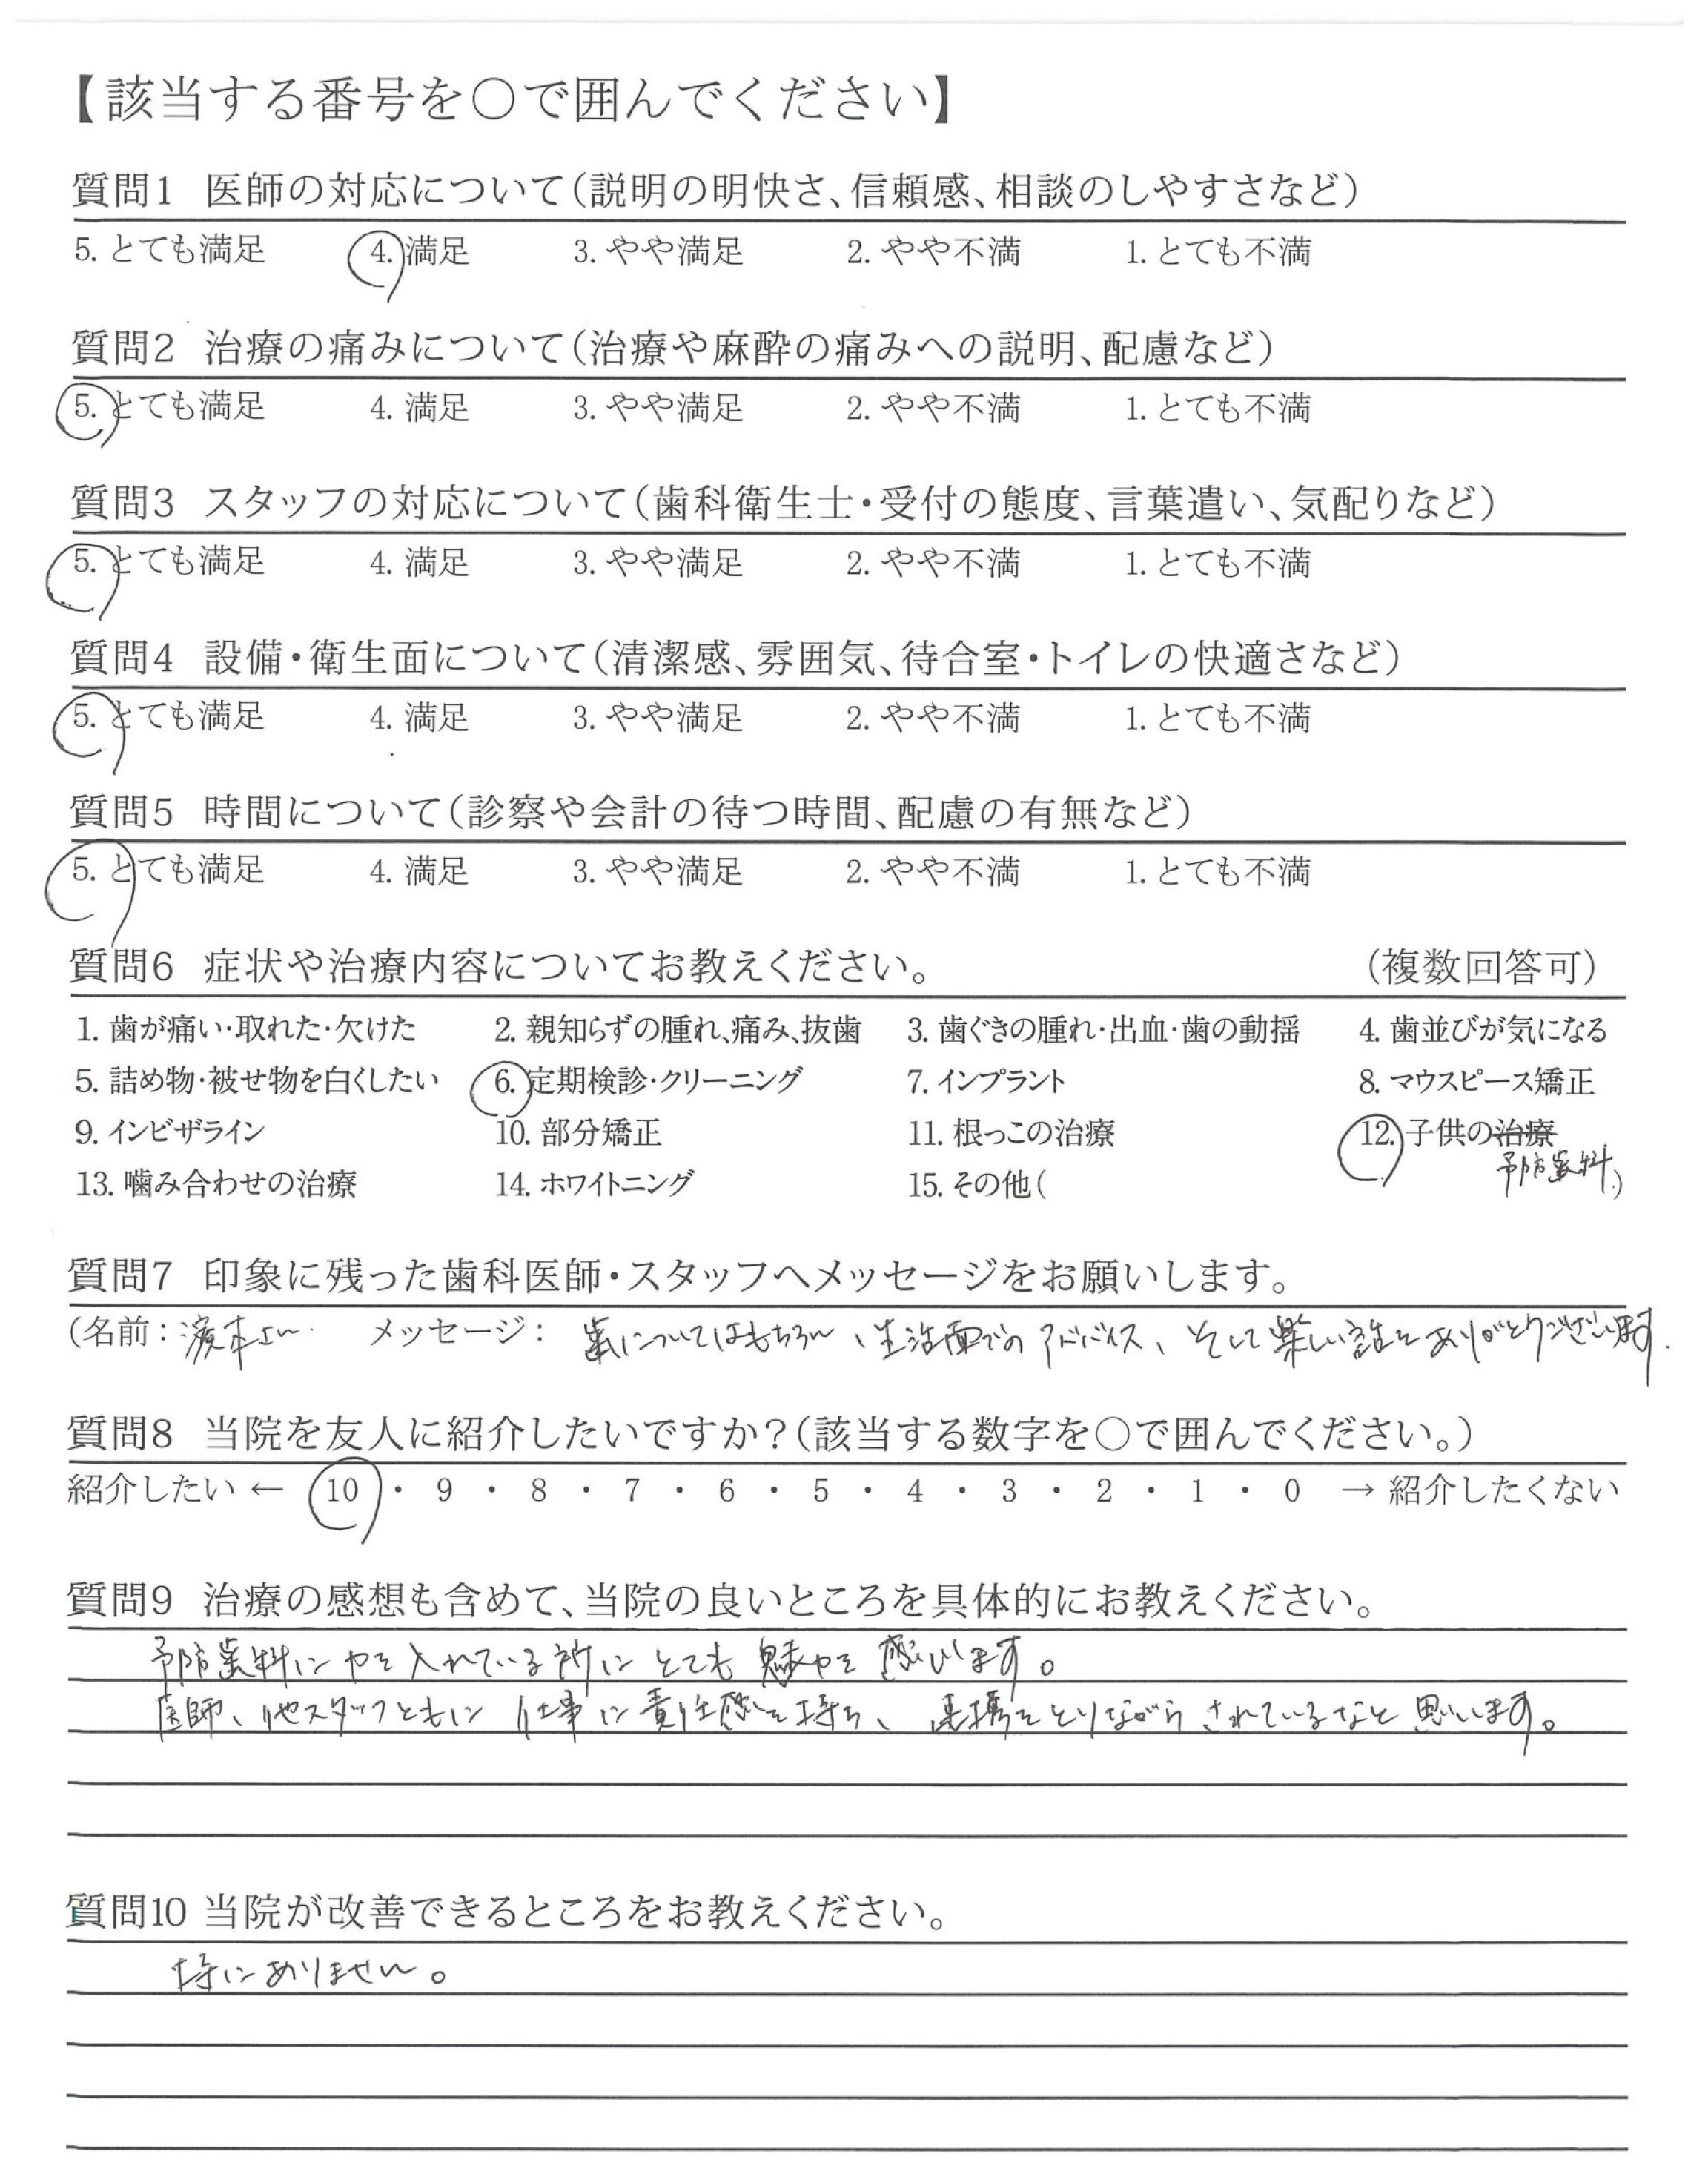 【該当する番号を○で囲んでください】
質問1 医師の対応について(説明の明快さ、信頼感、相談のしやすさなど)
5. とても満足 4. 満足 3. やや満足 2. やや不満 1. とても不満
質問2 治療の痛みについて(治療や麻酔の痛みへの説明、配慮など)
5. とても満足 4. 満足 3. やや満足 2. やや不満 1. とても不満
質問3 スタッフの対応について(歯科衛生士・受付の態度、言葉遣い、気配りなど)
5. とても満足 4. 満足 3. やや満足 2. やや不満 1. とても不満
質問4 設備・衛生面について(清潔感、雰囲気、待合室・トイレの快適さなど)
5. とても満足 4. 満足 3. やや満足 2. やや不満 1. とても不満
質問5 時間について(診察や会計の待つ時間、配慮の有無など)
5. とても満足 4. 満足 3. やや満足 2. やや不満 1. とても不満
質問6 症状や治療内容についてお教えください。 (複数回答可)
1. 歯が痛い・取れた・欠けた 2. 親知らずの腫れ、痛み、抜歯 3. 歯ぐきの腫れ・出血・歯の動揺 4. 歯並びが気になる
5. 詰め物・被せ物を白くしたい 6. 定期検診・クリーニング 7. インプラント 8. マウスピース矯正
9. インビザライン 10. 部分矯正 11. 根っこの治療 12. 子供の治療
予防歯科
13. 噛み合わせの治療 14. ホワイトニング 15. その他( )
質問7 印象に残った歯科医師・スタッフへメッセージをお願いします。
(名前: 本さん メッセージ: 歯についてはもちろん、生活面でのアドバイス、そして楽しい話をありがとうございます.
質問8 当院を友人に紹介したいですか?(該当する数字を○で囲んでください。)
紹介したい ← 10 ・ 9 ・ 8 ・ 7 ・ 6 ・ 5 ・ 4 ・ 3 ・ 2 ・ 1 ・ 0 → 紹介したくない
質問9 治療の感想も含めて、当院の良いところを具体的にお教えください。
予防歯科に力を入れている所にとても魅力を感じます。
医師、他スタッフともに仕事に責任感を持ち、連携をとりながらされているなと思います。
質問10 当院が改善できるところをお教えください。
特にありません。